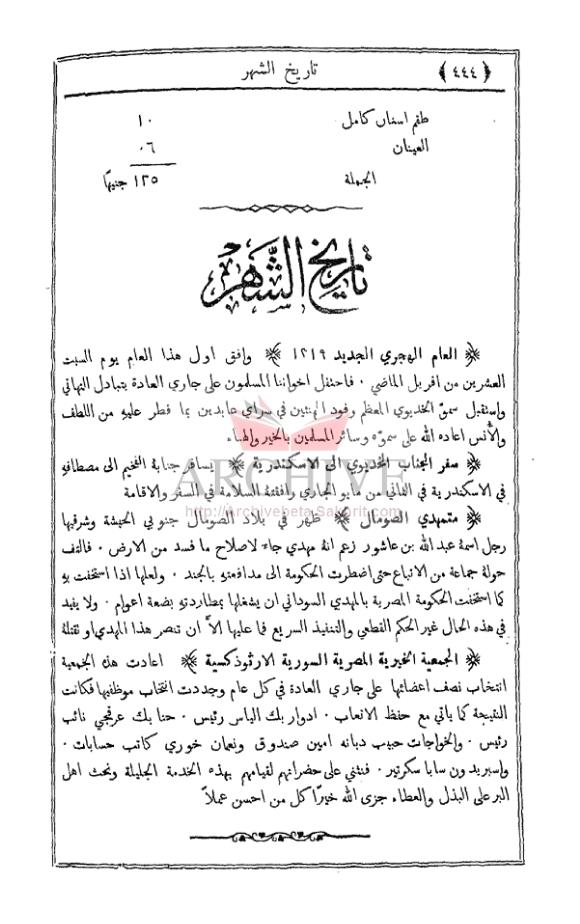 ﴿ ٤٤٤ ﴾ تاريخ الشهر
طقم اسنان كامل ١٠
العينان ٠٦
الجملة ١٢٥ جنيهًا
تاريخ الشهر
﴿ العام الهجري الجديد ١٣١٩ ﴾ وافق اول هذا العام يوم السبت
العشرين من افريل الماضي . فاحتفل اخواننا المسلمون على جاري العادة بتبادل التهاني
واستقبل سموّ الخديوي المعظم وفود المهنئين في سراي عابدين بما فطر عليه من اللطف
والأنس اعاده الله على سموّه وسائر المسلمين بالخير والهناء .
﴿ سفر الجناب الخديوي الى الاسكندرية ﴾ يسافر جنابهُ الفخيم الى مصطافهِ
في الاسكندرية في الثاني من مايو الجاري رافقتهُ السلامة في السفر والاقامة
﴿ متمهدي الصومال ﴾ ظهر في بلاد الصومال جنوبي الحبشة وشرقيها
رجل اسمهُ عبد الله بن عاشور زعم انهُ مهدي جاء لاصلاح ما فسد من الارض . فالتف
حولهُ جماعة من الاتباع حتى اضطرت الحكومة الى مدافعتهِ بالجند . ولعلها اذا استخفت بهِ
كما استخفت الحكومة المصرية بالمهدي السوداني ان يشغلها بمطاردتهِ بضعة اعوام . ولا يفيد
في هذه الحال غير الحكم القطعي والتنفيذ السريع فما عليها الاَّ ان تنصر هذا المهدي او تقتلهُ
﴿ الجمعية الخيرية المصرية السورية الارثوذكسية ﴾ اعادت هذه الجمعية
انتخاب نصف اعضائها على جاري العادة في كل عام وجددت انتخاب موظفيها فكانت
النتيجة كما ياتي مع حفظ الالقاب . ادوار بك الياس رئيس . حنا بك عرقجي نائب
رئيس . والخواجات حبيب دبانه امين صندوق ونعمان خوري كاتب حسابات .
واسبريدون سابا سكرتير . فنثني على حضراتهم لقيامهم بهذه الخدمة الجليلة ونحث اهل
البر على البذل والعطاء جزى الله خيرًا كل من احسن عملاً
ARCHIVE
http://Archivebeta.Sakhrit.com